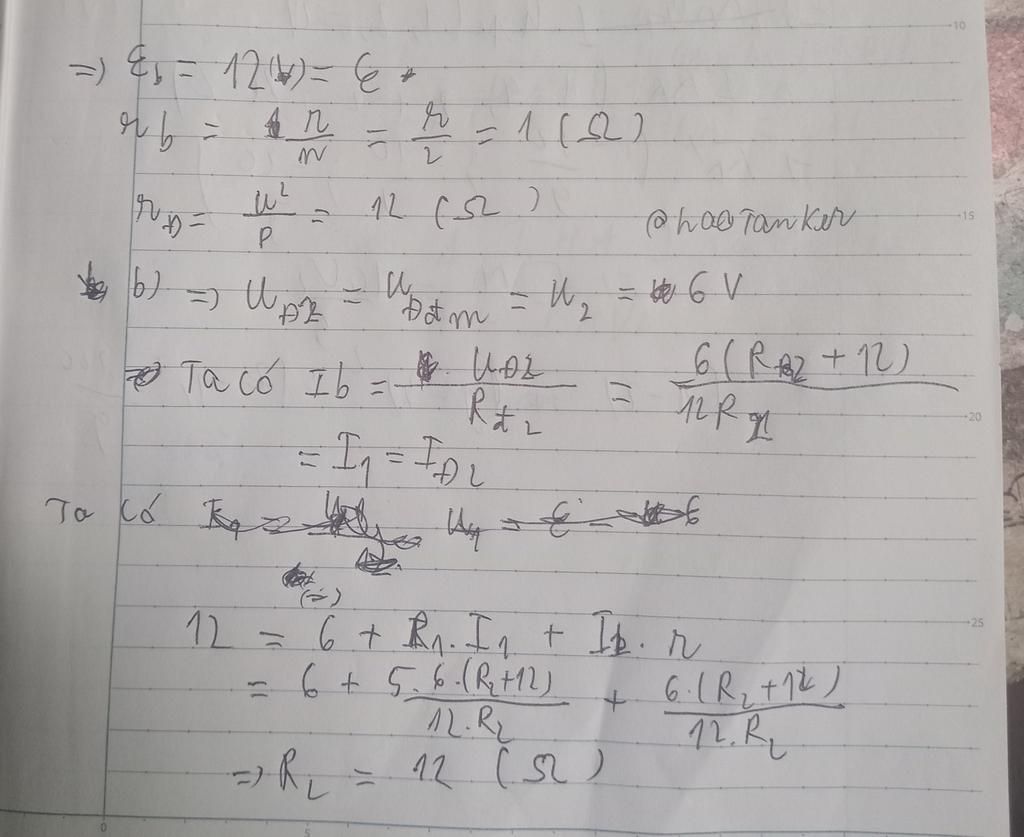 =) ℰ₁ = 12 (V) = ℰ
r b = r/n = r/2 = 1 (Ω)
r_Đ = u²/P = 12 (Ω)
@haoTanker
b) => U_Đ2 = U_Đđm = U₂ = 6 V
=> Ta có Ib = U_Đ2/R_t2 = 6(R_Đ2 + 12)/12R_2
= I₁ = I_Đ2
Ta có
(=)
12 = 6 + R₁.I₁ + Ib.r
= 6 + 5.6.(R₂+12)/12.R₂ + 6.(R₂+12)/12.R₂
=> R₂ = 12 (Ω)
10
15
20
25
0
5